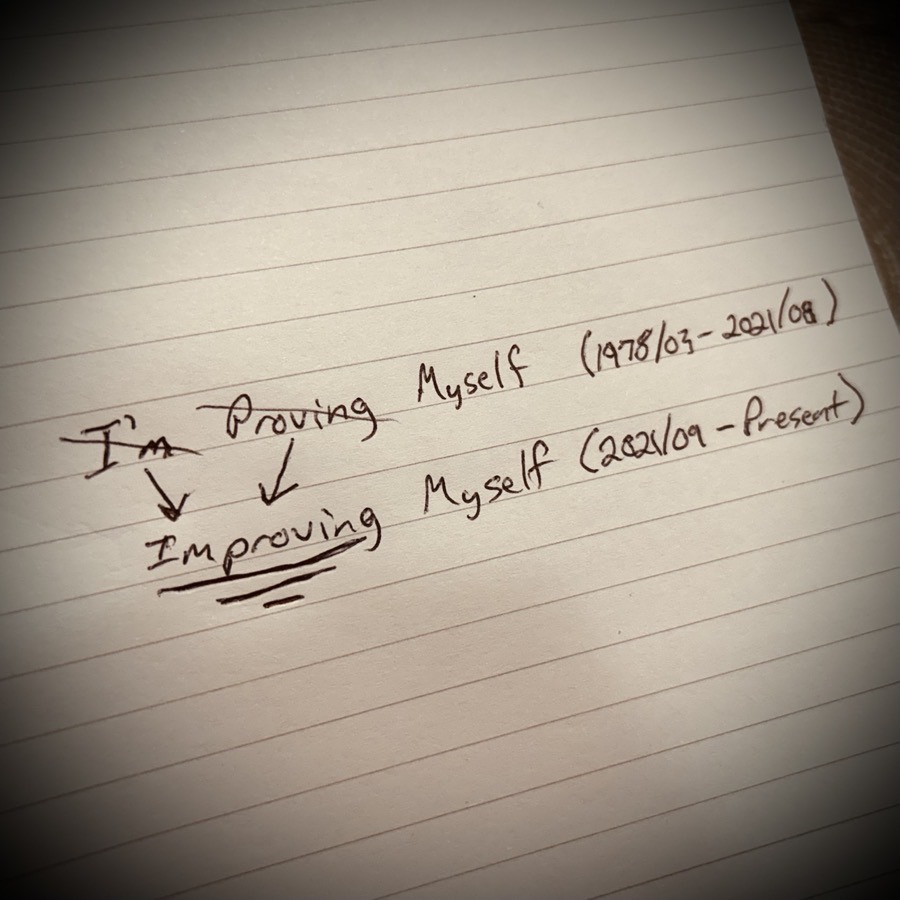 I'm Proving Myself (1978/03-2021/08)
Improving Myself (2021/09-Present)